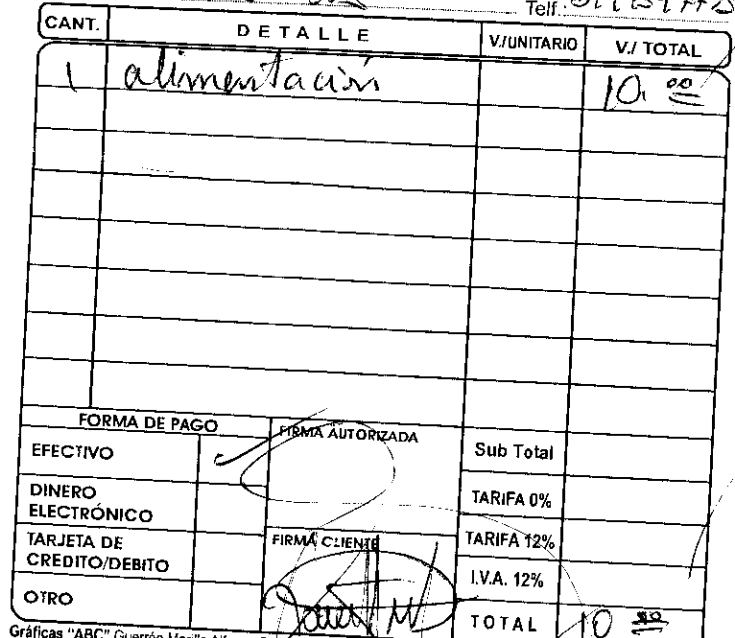 Telf.:
CANT. DETALLE V./UNITARIO V./ TOTAL
1 alimentación 10.00
FORMA DE PAGO
EFECTIVO
DINERO
ELECTRÓNICO
TARJETA DE
CREDITO/DEBITO
OTRO
FIRMA AUTORIZADA
FIRMA CLIENTE
Sub Total
TARIFA 0%
TARIFA 12%
I.V.A. 12%
TOTAL 10.00
Gráficas "ABC" Guerrón